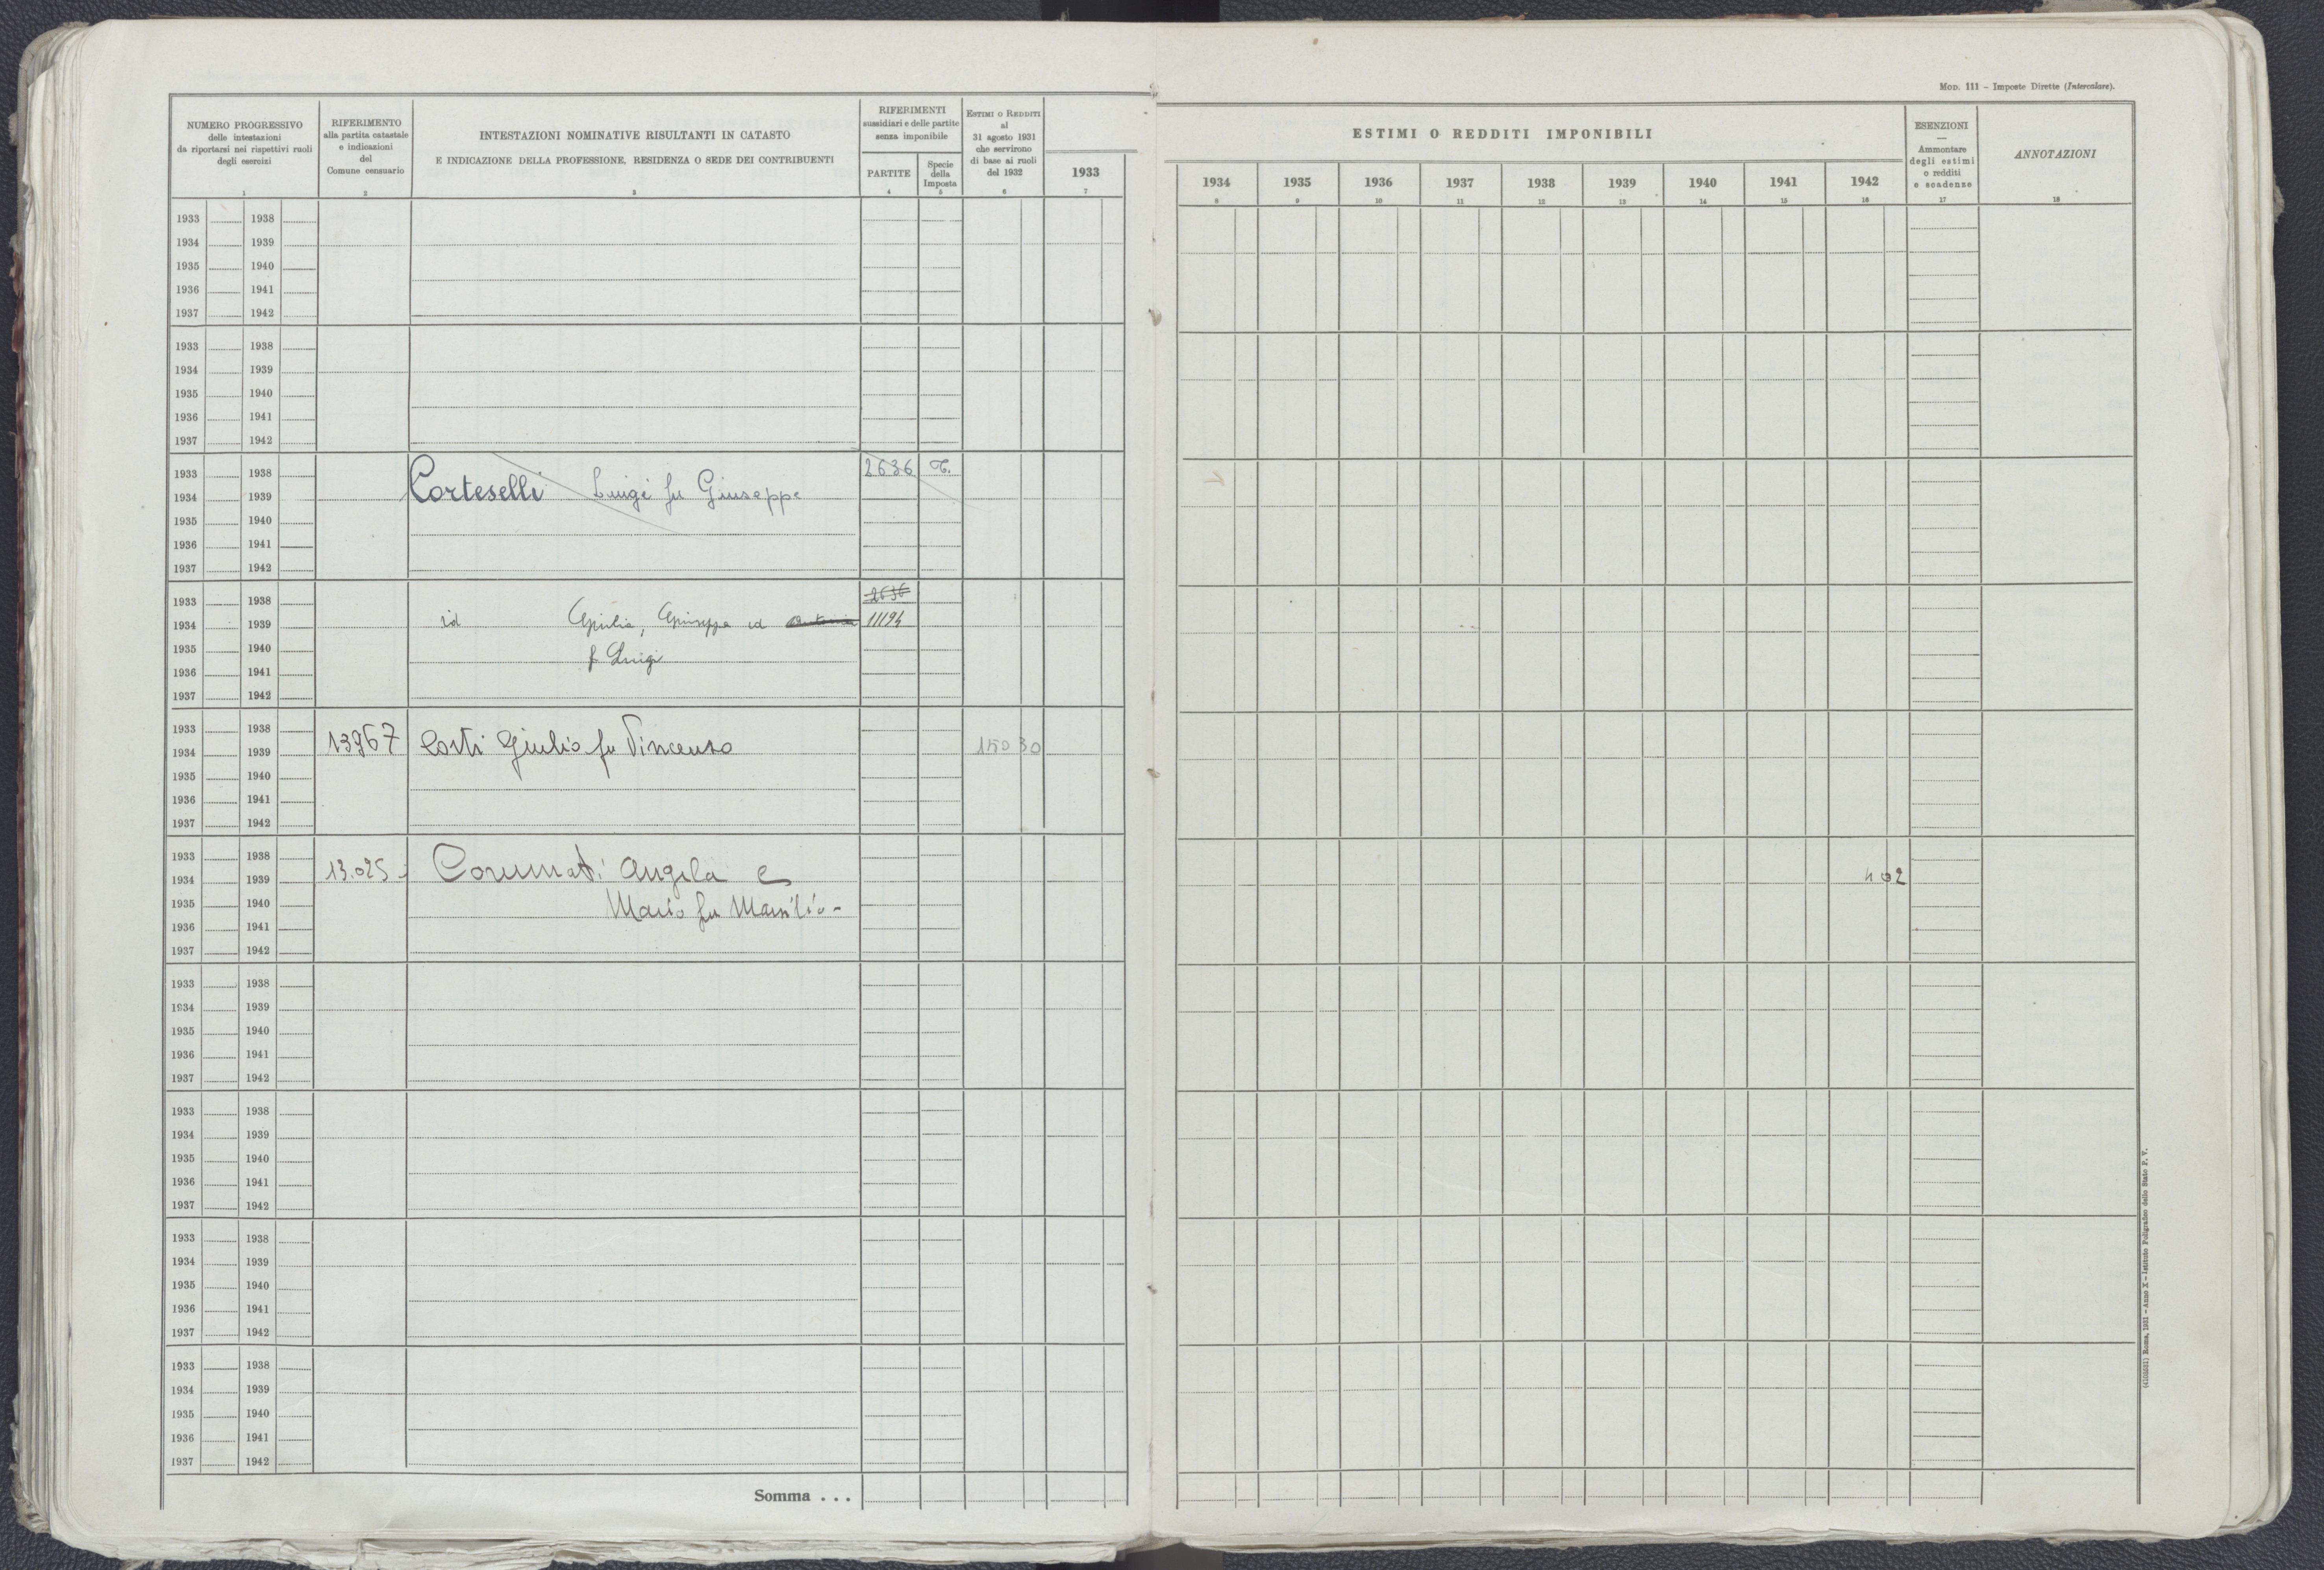 MOD. 111 – Imposte Dirette (Intercalare).
NUMERO PROGRESSIVO
delle intestazioni
da riportarsi nei rispettivi ruoli
degli esercizi
1
RIFERIMENTO
alla partita catastale
e indicazioni
del
Comune censuario
2
INTESTAZIONI NOMINATIVE RISULTANTI IN CATASTO
E INDICAZIONE DELLA PROFESSIONE, RESIDENZA O SEDE DEI CONTRIBUENTI
3
RIFERIMENTI
sussidiari e delle partite
senza imponibile
PARTITE
4
Specie
della
Imposta
5
ESTIMI O REDDITI
al
31 agosto 1931
che servirono
di base ai ruoli
del 1932
6
1933
7
ESTIMI O REDDITI IMPONIBILI
1934 1935 1936 1937 1938 1939 1940 1941 1942
8 9 10 11 12 13 14 15 16
ESENZIONI
—
Ammontare
degli estimi
o redditi
e scadenze
17
ANNOTAZIONI
18
1933 1938
1934 1939
1935 1940
1936 1941
1937 1942
1933 1938
1934 1939
1935 1940
1936 1941
1937 1942
1933 1938 2636 T.
1934 1939 Corteselli Luigi fu Giuseppe
1935 1940
1936 1941
1937 1942
1933 1938 2636
1934 1939 id Giulia, Giuseppe ed 11194
1935 1940 f Luigi
1936 1941
1937 1942
1933 1938
1934 1939 13967 Costi Giulio fu Vincenzo 150 30
1935 1940
1936 1941
1937 1942
1933 1938
1934 1939 13.025 Angela e 402
1935 1940 Mario fu Marsilio -
1936 1941
1937 1942
1933 1938
1934 1939
1935 1940
1936 1941
1937 1942
1933 1938
1934 1939
1935 1940
1936 1941
1937 1942
1933 1938
1934 1939
1935 1940
1936 1941
1937 1942
1933 1938
1934 1939
1935 1940
1936 1941
1937 1942
Somma . . .
Roma, 1931 – Anno X – Istituto Poligrafico dello Stato P. V.